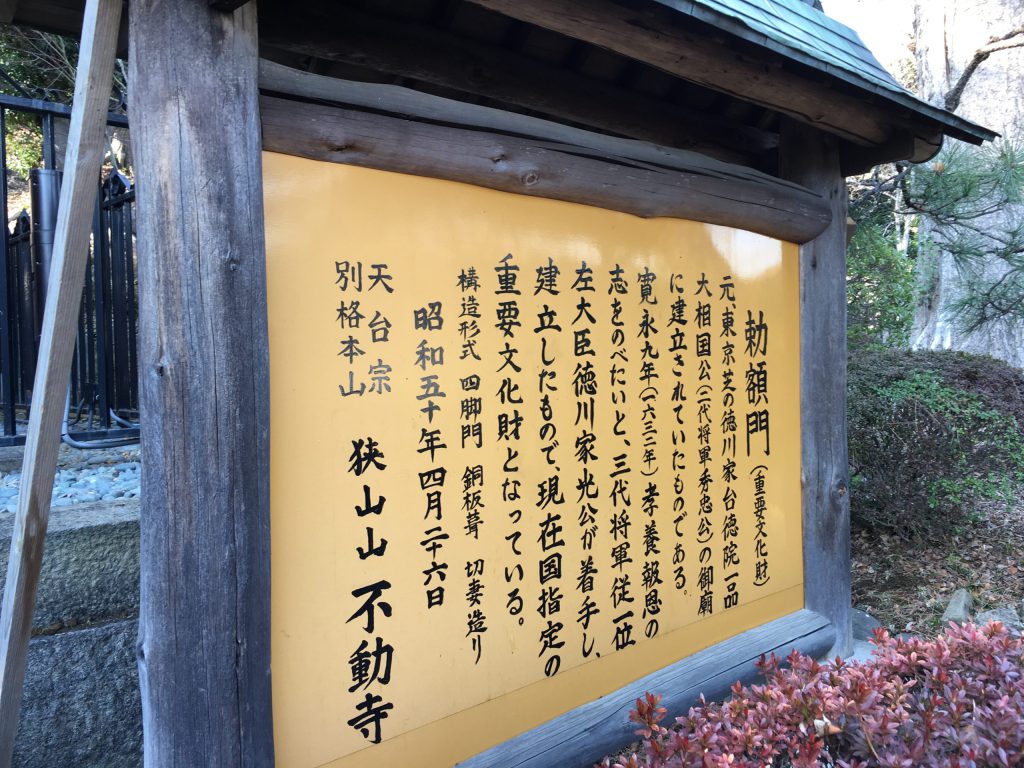 勅額門(重要文化財)
元、東京芝の徳川家台徳院一品
大相国公(二代将軍秀忠公)の御廟
に建立されていたものである。
寛永九年(一六三二年)孝養報恩の
志をのべたいと、三代将軍従一位
左大臣徳川家光公が着手し、
建立したもので、現在国指定の
重要文化財となっている。
構造形式 四脚門 銅板葺 切妻造り
昭和五十年四月二十六日
天台宗
別格本山 狭山山 不動寺